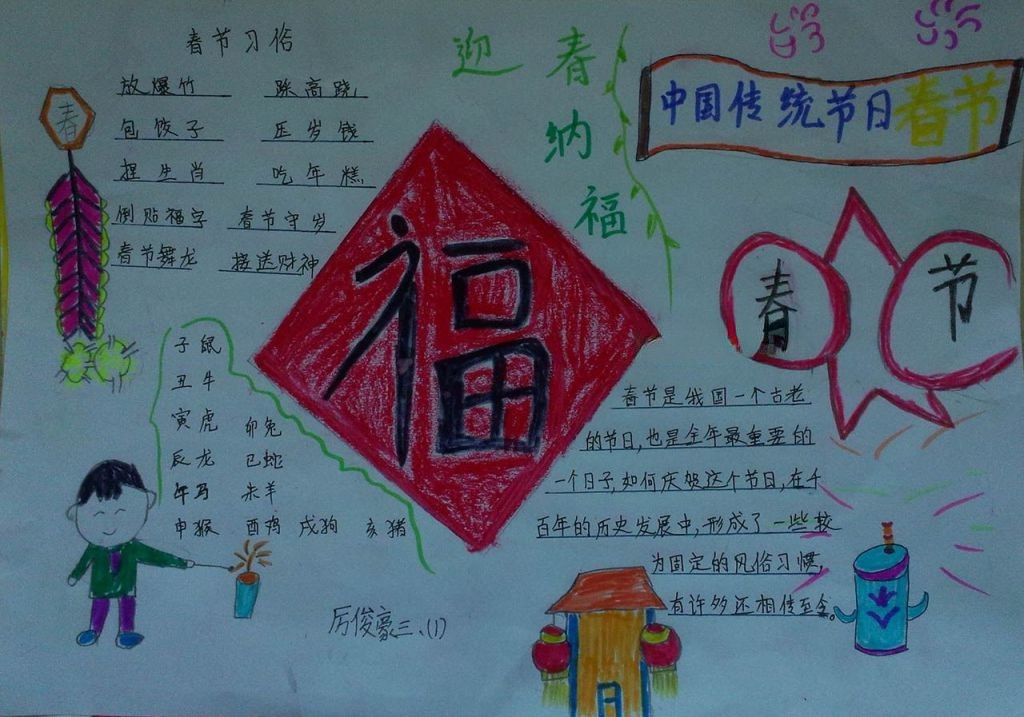 春节习俗
放爆竹 踩高跷
包饺子 压岁钱
捏生肖 吃年糕
倒贴福字 春节守岁
春节舞龙 接送财神
春
迎春
纳
福
中国传统节日春节
福
春节
子鼠
丑牛
寅虎 卯兔
辰龙 巳蛇
午马 未羊
申猴 酉鸡 戌狗 亥猪
春节是我国一个古老
的节日,也是全年最重要的
一个日子,如何庆贺这个节日,在千
百年的历史发展中,形成了一些较
为固定的风俗习惯,
有许多还相传至今。
厉俊豪三、(1)